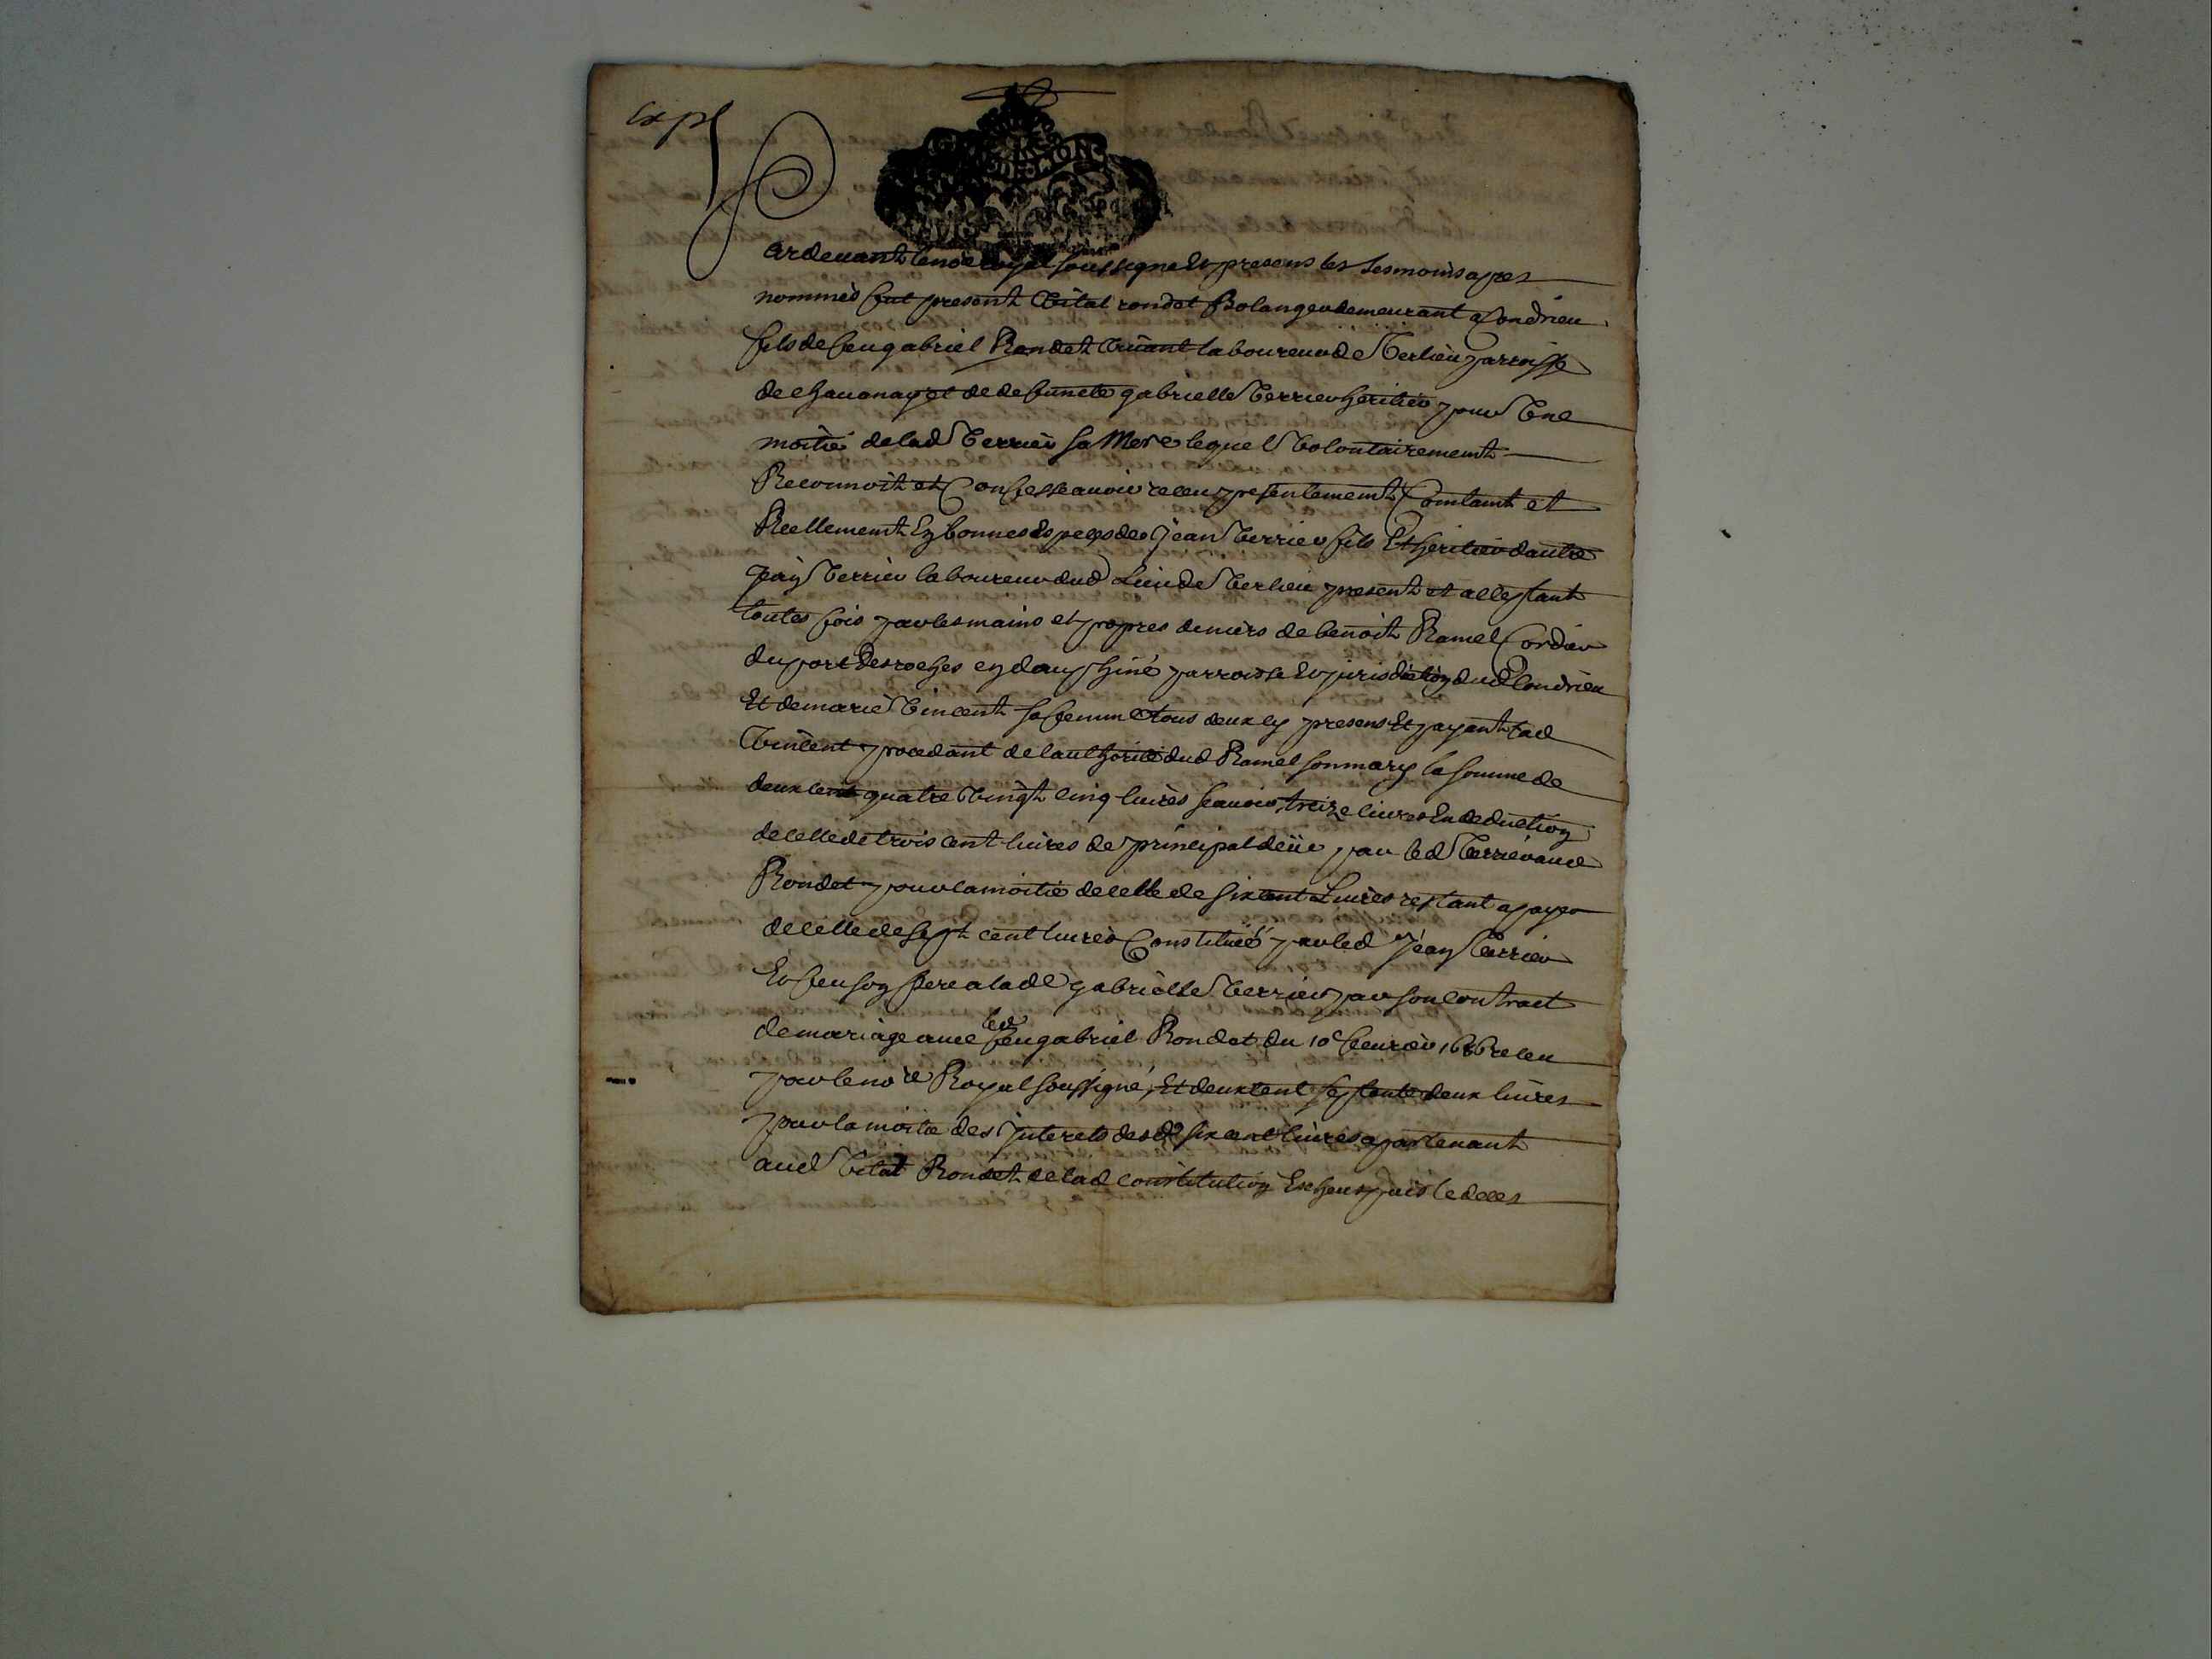 Expé
GEN DE LION
Pardeuant le no̅re royal soussigné Et presens les tesmoins apres
nommés fut present Vital rondet Bolanger demeurant a Condrieu
fils de feu gabriel Rondet viuant laboureur de Verlieu parroisse
de chauanay et de defuncte gabrielle Verrier heritier pour Vne
moitié de lad Verrier sa Mere lequel Volontairement
Reconnoit et Confesse auoir receu presentement Comtant et
Reellement En bonnes Especes de Jean Verrier fils Et heritier dautre
Jean Verrier laboureur dud Lieu de Verlieu present et acceptant
toutes fois par les mains et propres deniers de benoit Ramel Cordier
du port Des roches en dauphiné parroisse Et jurisdiction dud Condrieu
Et de marie Vincent sa femme tous deux icy presens Et payant lad
Vincent procedant de lauthorité dud Ramel son mary la somme de
deux cent quatre Vingt cinq liures scauoir treize liures En deduction
de celle de trois cent liures de principal deüe par led Verrier aud
Rondet pour la moitié de celle de six cent Liures restant a payer
de celle de sept cent liures Constituéé par led Jean Verrier
Et feu son frere a lade gabrielle Verrier par son contract
de mariage auec led feu gabriel Rondet du 10e feurier 1666 receu
par le no̅re Royal soussigné, Et deux cent septante deux liures
pour la moitié des Jnterets desd six cent liures apartenant
aud Vital Rondet de lad constitution Escheus puis le deces